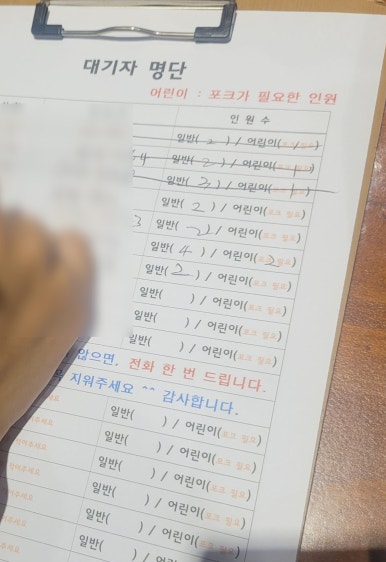 대기자 명단
어린이 : 포크가 필요한 인원
인 원 수
일반( 2 ) / 어린이(포크 필요)
64 일반( 2 ) / 어린이( 1 )
일반( 3 ) / 어린이( 1 )
일반( 2 ) / 어린이(포크 필요)
3 일반( 2 ) / 어린이(포크 필요)
일반( 4 ) / 어린이(포크 필요 2)
일반( 2 ) / 어린이(포크 필요)
일반( ) / 어린이(포크 필요)
일반( ) / 어린이(포크 필요)
일반( ) / 어린이(포크 필요)
않으면, 전화 한 번 드립니다.
지워주세요 ^^ 감사합니다.
일반( ) / 어린이(포크 필요)
일반( ) / 어린이(포크 필요)
일반( ) / 어린이(포크 필요)
일반( ) / 어린이(포크 필요)
일반( ) / 어린이(포크 필요)
일반( ) / 어린이(포크 필요)